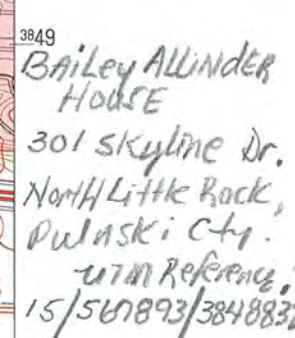 3849
BAILEY ALLINDER
HOUSE
301 Skyline Dr.
North Little Rock,
Pulaski Cty.
UTM Reference:
15/567893/3848837